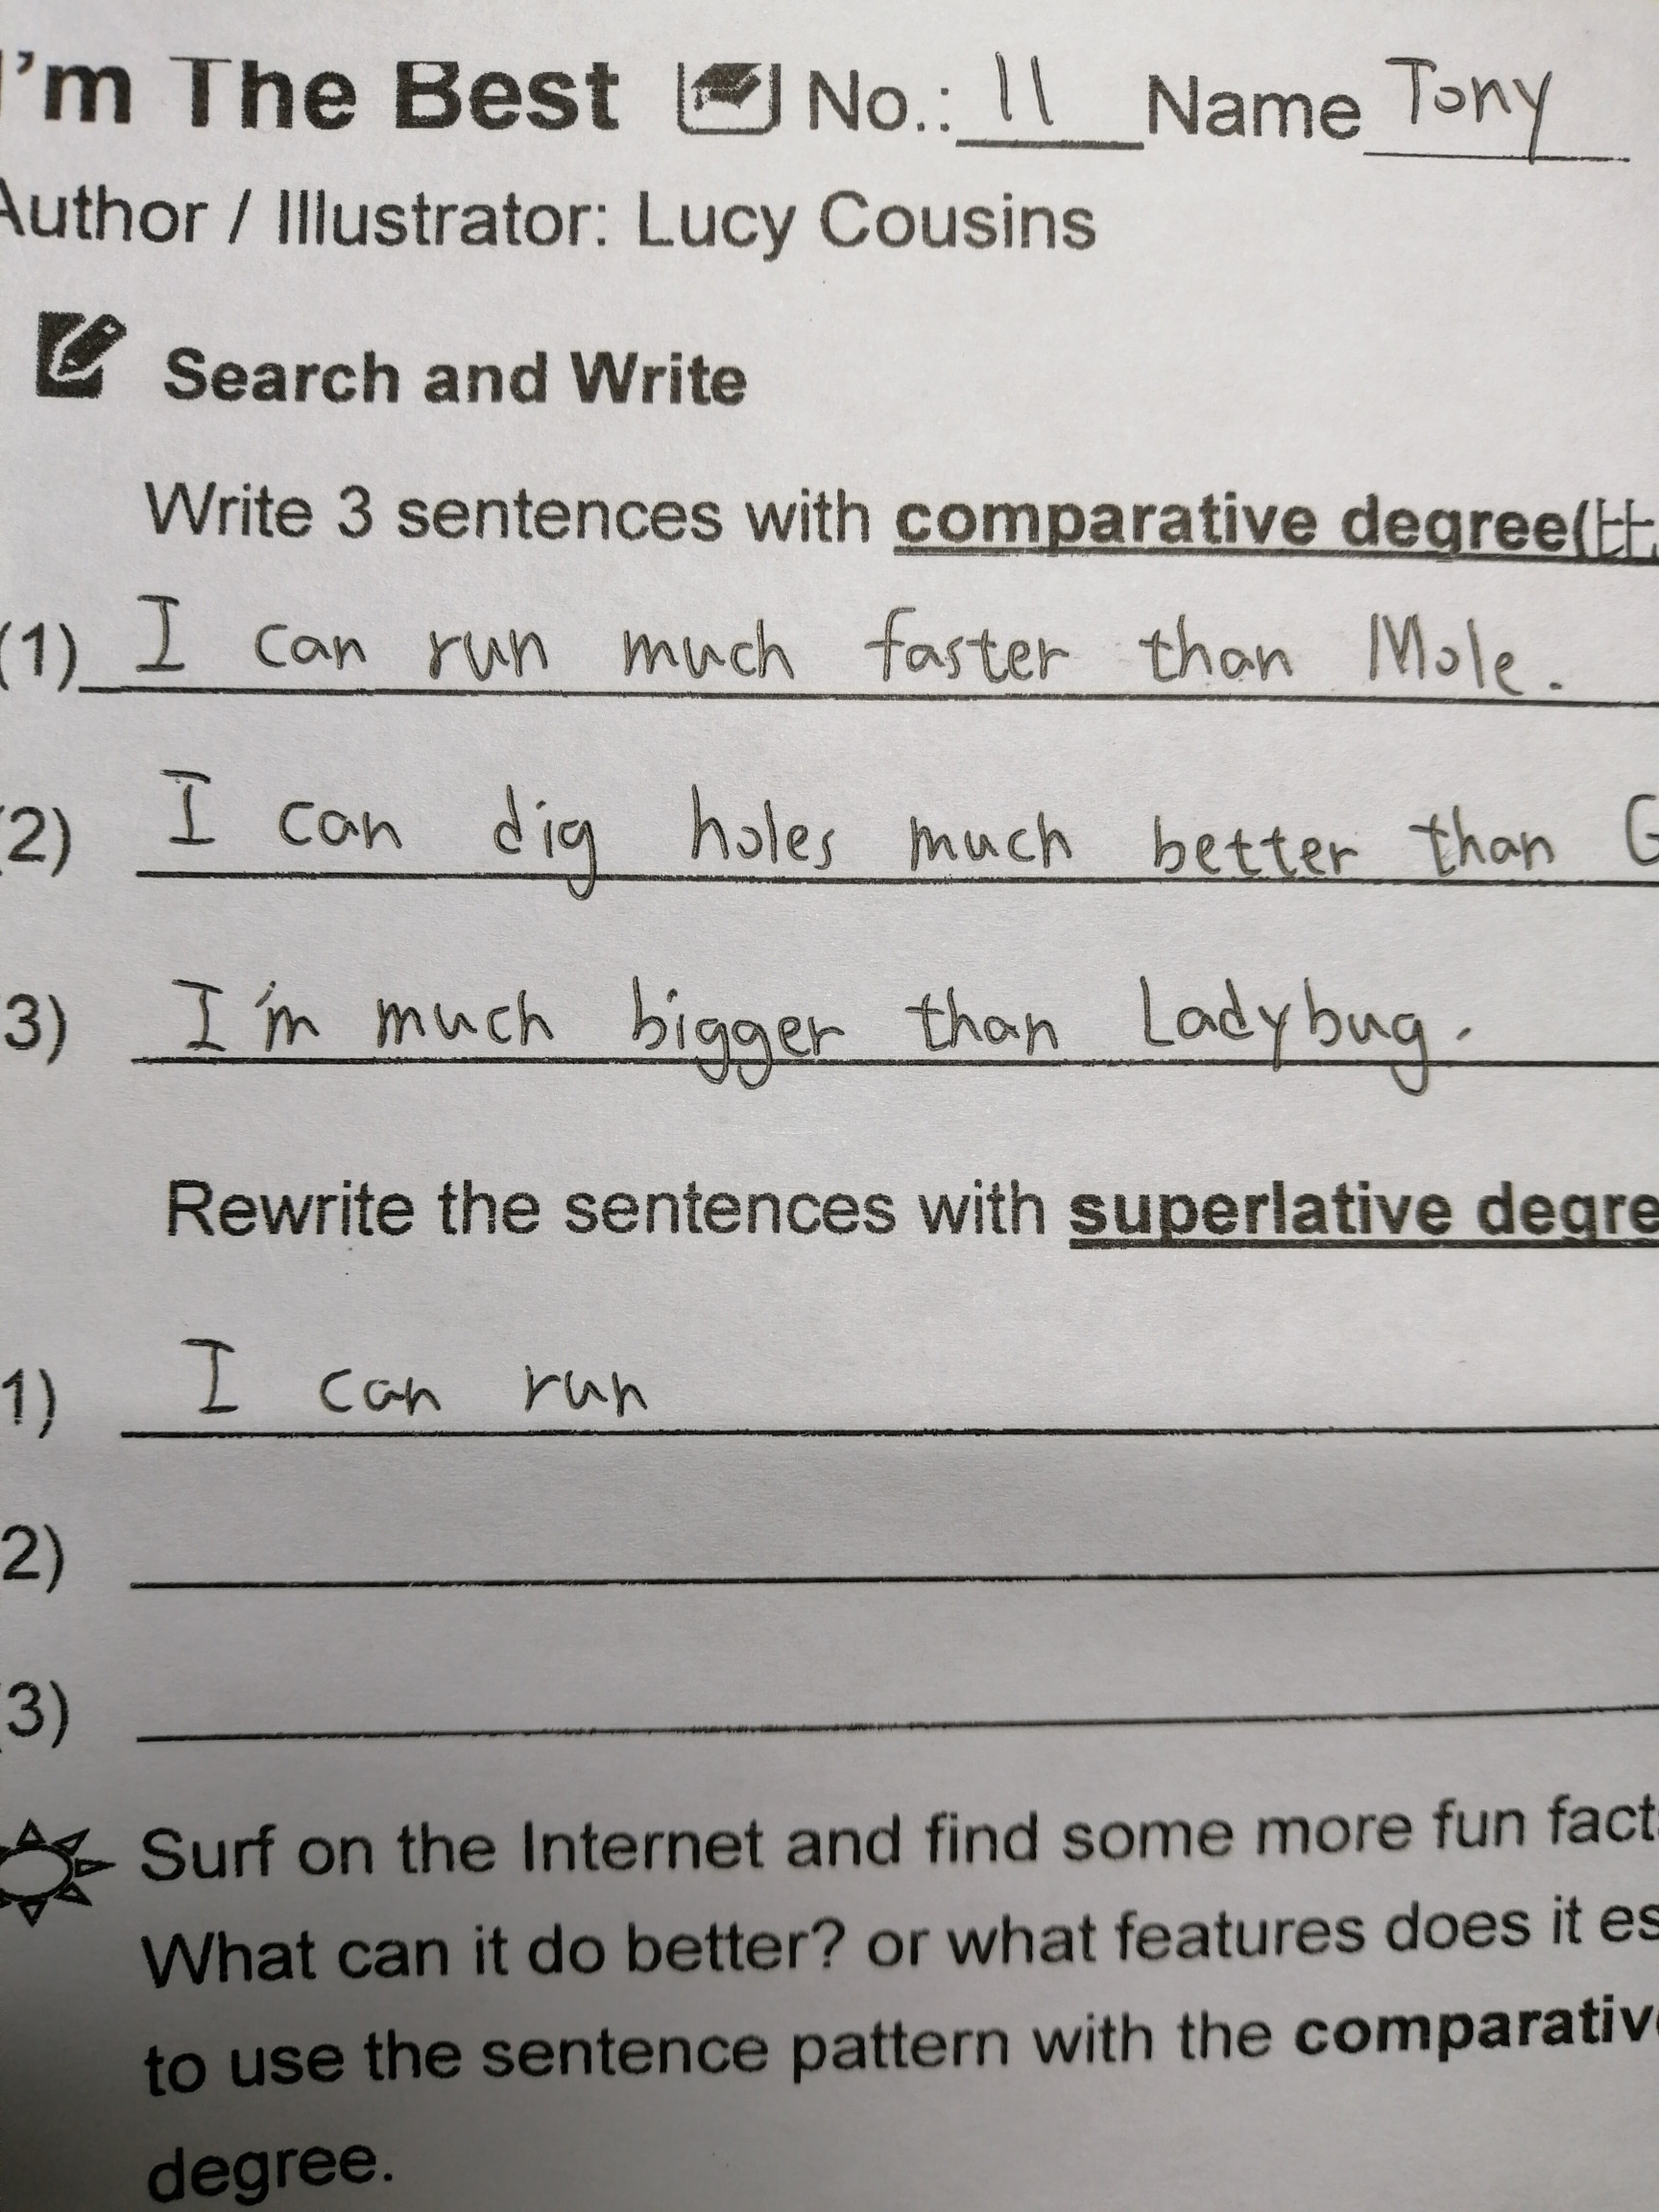 I'm The Best No.: 11 Name Tony
Author / Illustrator: Lucy Cousins
Search and Write
Write 3 sentences with comparative degree(比
(1) I can run much faster than Mole.
2) I can dig holes much better than G
3) I'm much bigger than Ladybug.
Rewrite the sentences with superlative degre
1) I can run
2)
3)
Surf on the Internet and find some more fun fact
What can it do better? or what features does it es
to use the sentence pattern with the comparative
degree.